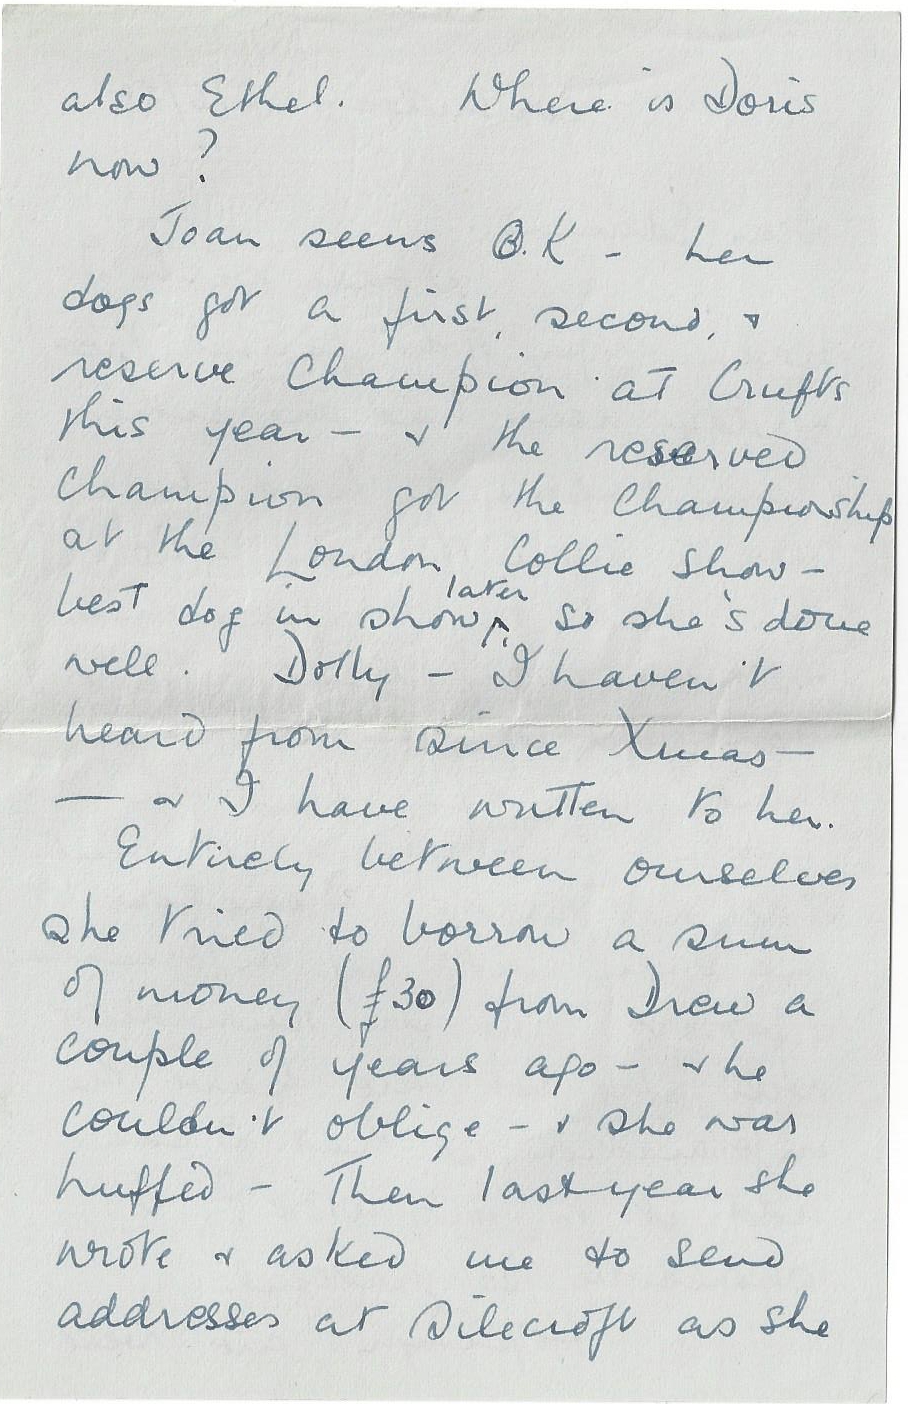 also Ethel. Where is Doris
now?
Joan seems O.K - her
dogs got a first, second, &
reserve Champion at Crufts
this year - & the reserved
Champion got the Championship
at the London Collie Show -
best dog in show later so she's done
well. Dolly - I haven't
heard from since Xmas -
- & I have written to her.
Entirely between ourselves
she tried to borrow a sum
of money (£30) from Drew a
couple of years ago - & he
couldn't oblige - & she was
huffed - Then last year she
wrote & asked me to send
addresses at Silecroft as she